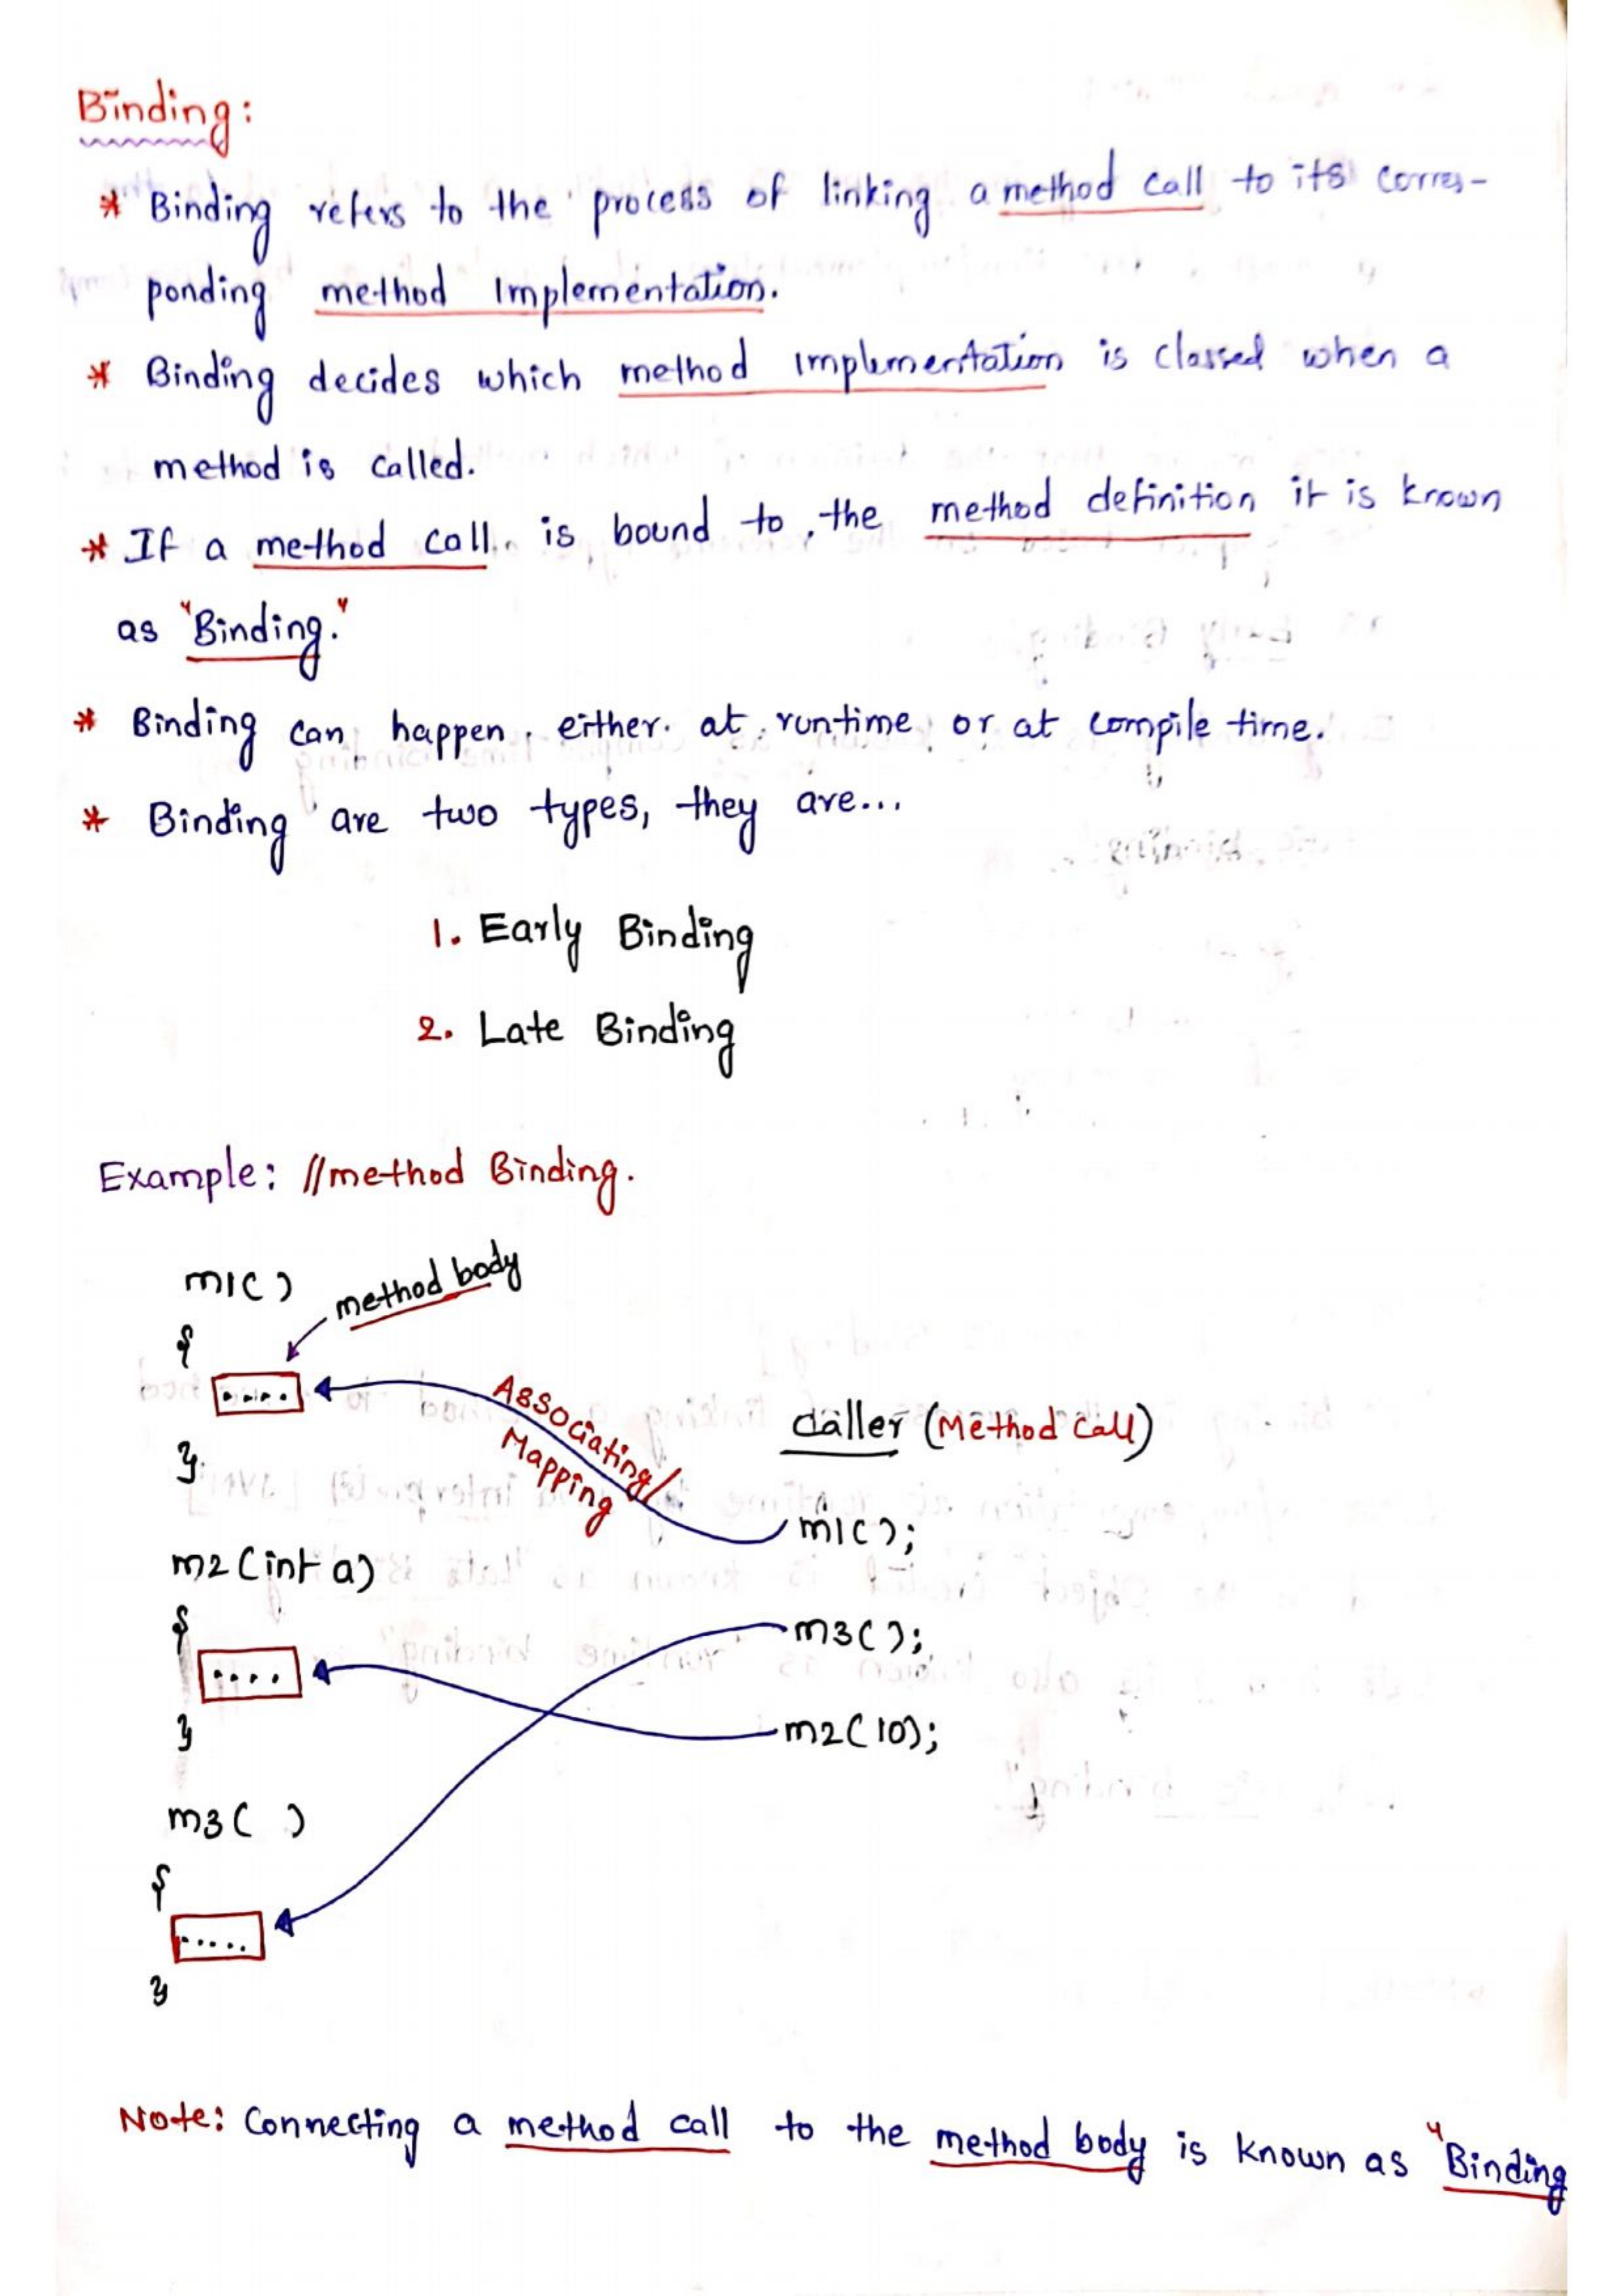 Binding:
* Binding refers to the process of linking a method call to its corres-
ponding method Implementation.
* Binding decides which method Implementation is classed when a
method is called.
* If a method call is bound to the method definition it is known
as "Binding."
* Binding can happen either at runtime or at compile time.
* Binding are two types, they are...
1. Early Binding
2. Late Binding
Example: //method Binding.
m1( )
method body
{
....
}
Associating/
Mapping
caller (Method call)
m1( );
m2(int a)
{
....
}
m3( );
m2(10);
m3( )
{
.....
}
Note: Connecting a method call to the method body is known as "Binding